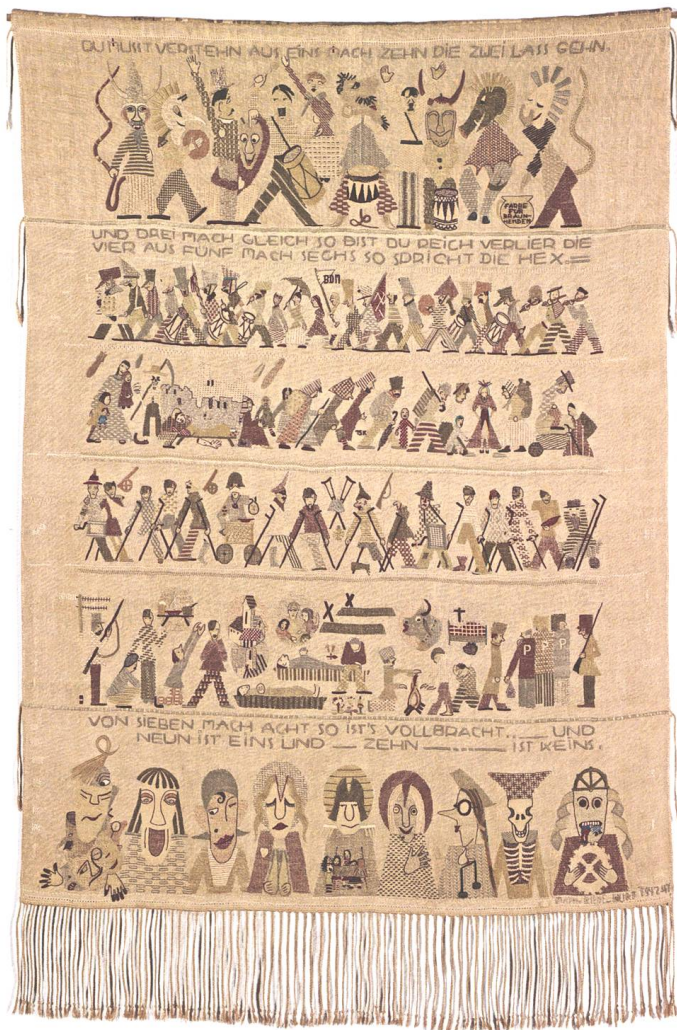 DU MUSST VERSTEHN AUS EINS MACH ZEHN DIE ZWEI LASS GEHN.
FARBE
FÜR
BRAUN-
HEMDEN
UND DREI MACH GLEICH SO BIST DU REICH VERLIER DIE
VIER AUS FÜNF MACH SECHS SO SPRICHT DIE HEX.=
BDM
P P P
VON SIEBEN MACH ACHT SO IST'S VOLLBRACHT.. __ UND
NEUN IST EINS UND — ZEHN —.— IST KEINS.